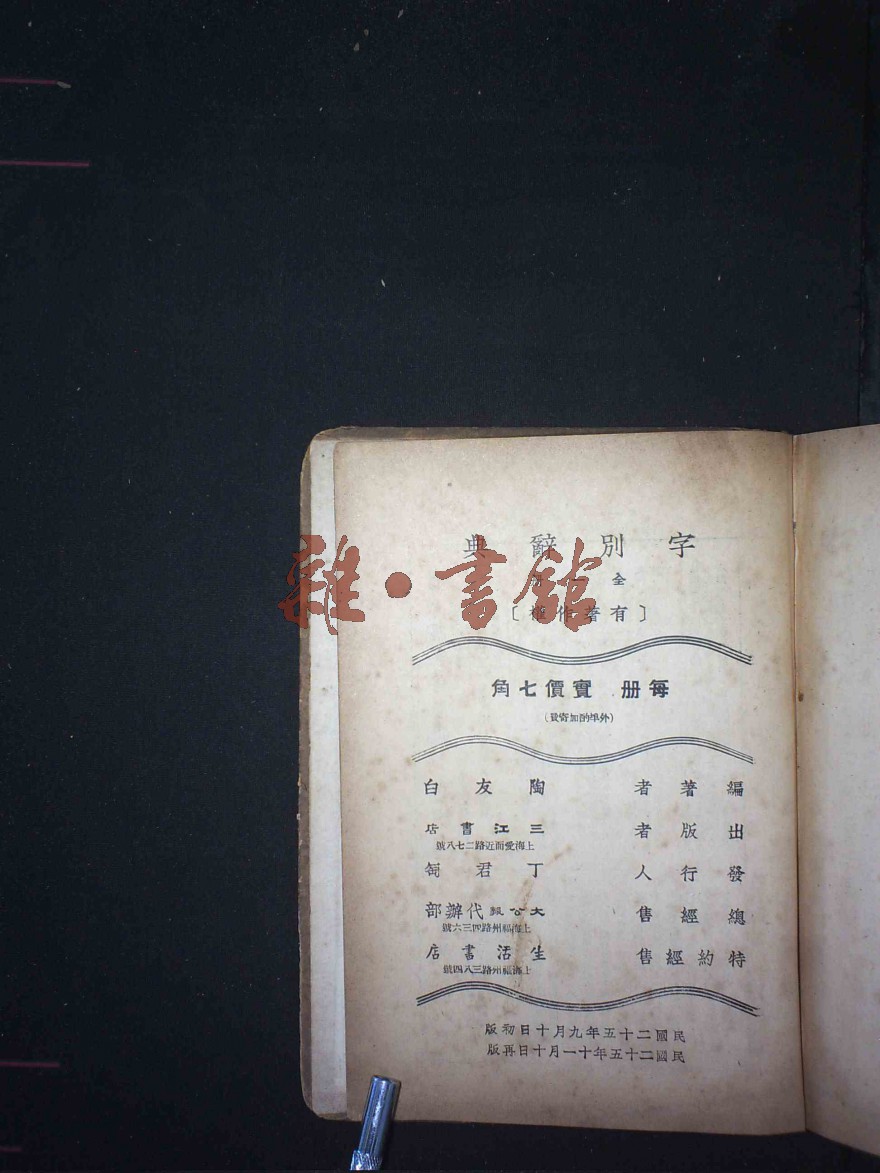 字別辭典
全一冊
〔有著作權〕
雜·書館
每册 實價七角
(外埠酌加寄費)
編著者 陶友白
出版者 三江書店
上海愛而近路二七八號
發行人 丁君匋
總經售 大公報代辦部
上海福州路四三六號
特約經售 生活書店
上海福州路三八四號
民國二十五年九月十日初版
民國二十五年十一月十日再版